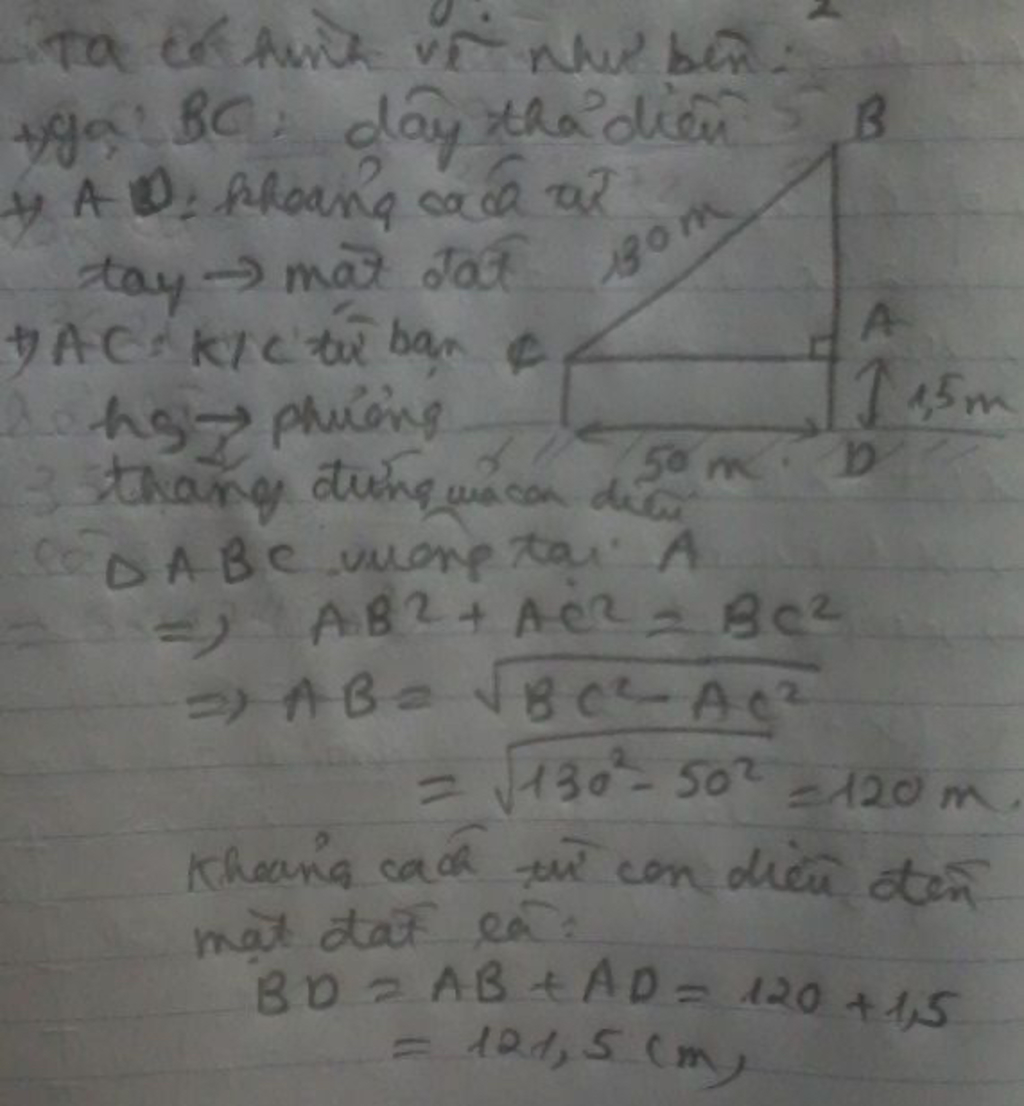 Ta có hình vẽ như bên:
+) gọi BC: dây thả diều
+) AD: khoảng cách từ
tay → mặt đất
+) AC: K/C từ bạn
hs → phương
thẳng đứng của con diều
B
130 m
C
A
1,5m
50 m
D
Δ ABC vuông tại A
=> AB² + AC² = BC²
=> AB = √(BC² - AC²)
= √(130² - 50²) = 120 m.
Khoảng cách từ con diều đến
mặt đất là:
BD = AB + AD = 120 + 1,5
= 121,5 (m)